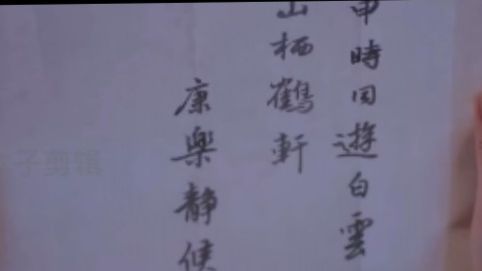 申時回遊白雲
山栖鶴軒
康樂靜候
子剪辑